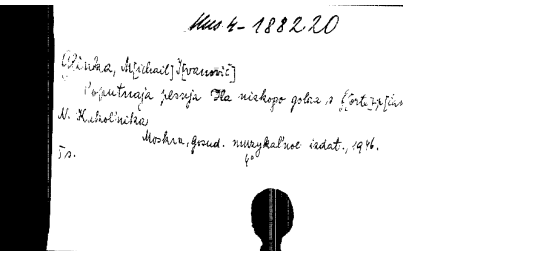 Mus 4-188220
Glinka, M[ichail] I[vanovič]
Poputnaja pesnja Dla nizkogo golosa s f[orte]p[ian
N. Kukol'nika
Moskva, gosud. muzykal'noe izdat., 1946.
5 s. 4°